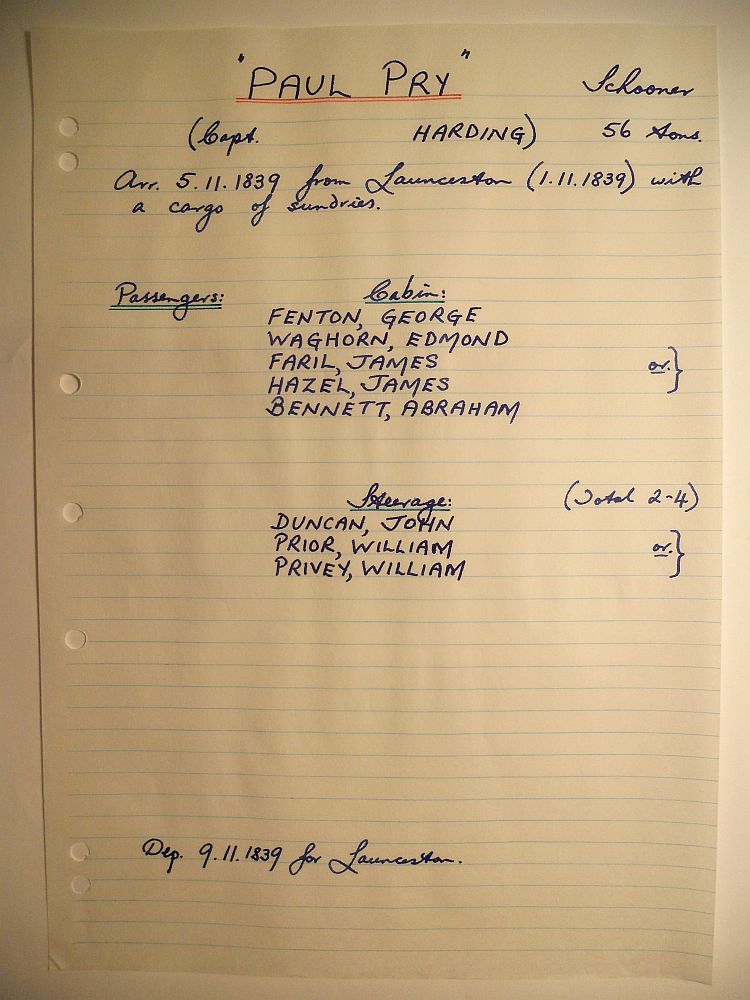 "PAUL PRY" Schooner
(Capt. HARDING) 56 tons.
Arr. 5.11.1839 from Launceston (1.11.1839) with
a cargo of sundries.
Passengers: Cabin:
FENTON, GEORGE
WAGHORN, EDMOND
FARIL, JAMES or. }
HAZEL, JAMES
BENNETT, ABRAHAM
Steerage: (Total 2-4)
DUNCAN, JOHN
PRIOR, WILLIAM or. }
PRIVEY, WILLIAM
Dep. 9.11.1839 for Launceston.